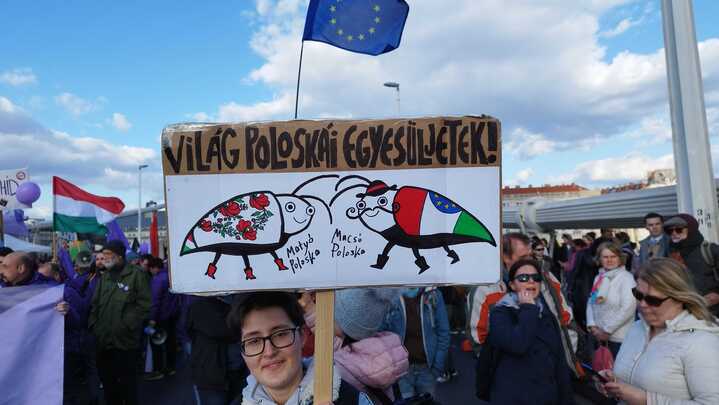 VILÁG POLOSKÁI EGYESÜLJETEK!
Matyó
Poloska
Macsó
Poloska
HID